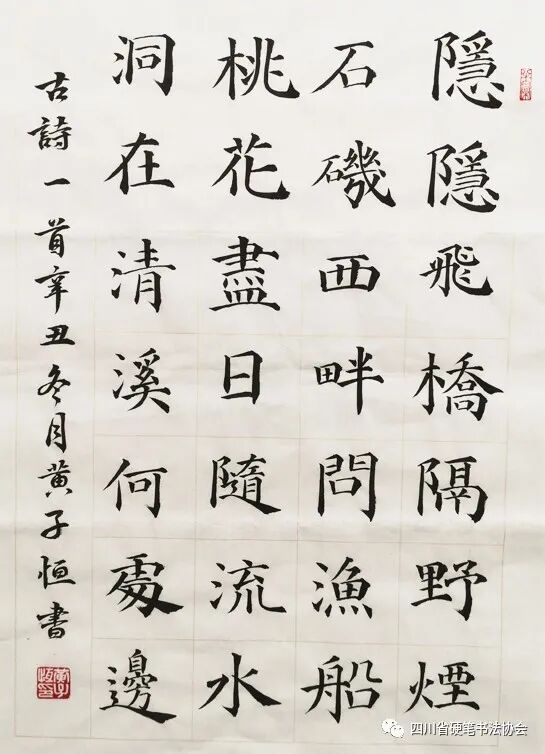 隱隱飛橋隔野煙
石磯西畔問漁船
桃花盡日隨流水
洞在清溪何處邊
古詩一首辛丑冬月黄子恒書
四川省硬笔书法协会